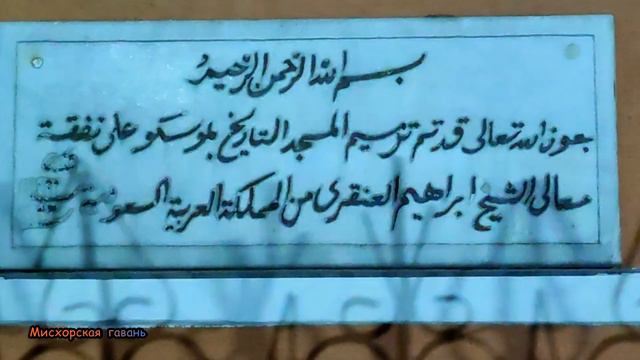 بسم الله الرحمن الرحيم
بعون الله تعالى قد تم ترميم المسجد التاريخ بموسكو على نفقة
معالى الشيخ ابراهيم العنقرى من المملكة العربية السعودية
Мисхорская гавань